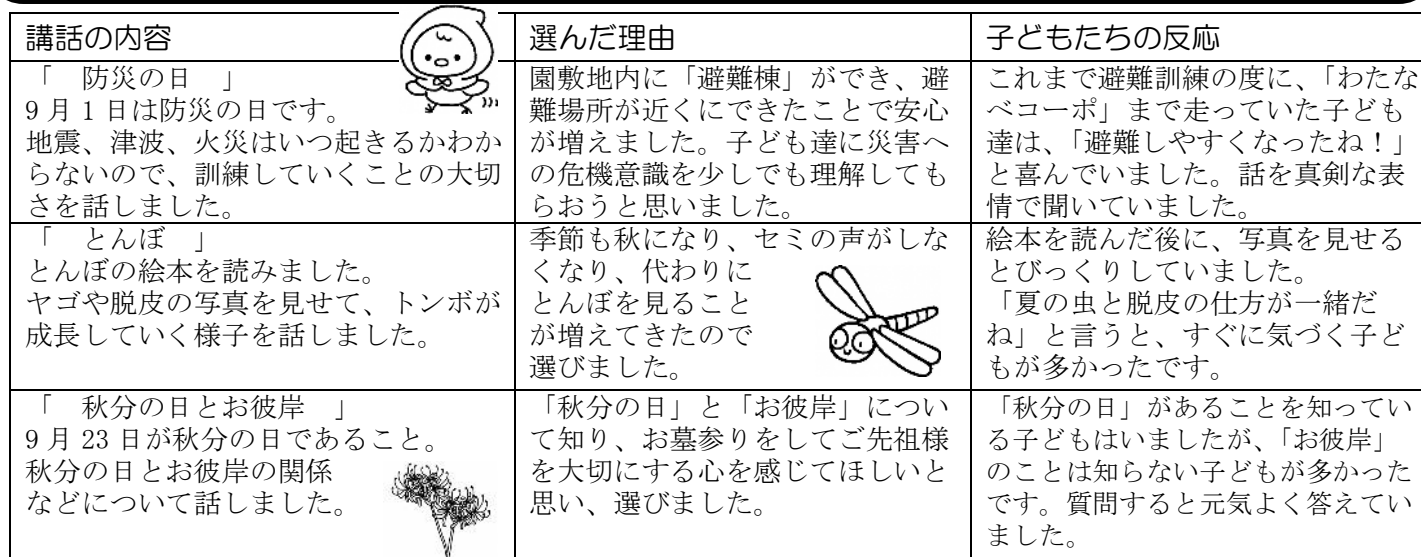 講話の内容
選んだ理由
子どもたちの反応
「　防災の日　」
9月1日は防災の日です。
地震、津波、火災はいつ起きるかわか
らないので、訓練していくことの大切
さを話しました。
園敷地内に「避難棟」ができ、避
難場所が近くにできたことで安心
が増えました。子ども達に災害へ
の危機意識を少しでも理解しても
らおうと思いました。
これまで避難訓練の度に、「わたな
べコーポ」まで走っていた子ども
達は、「避難しやすくなったね！」
と喜んでいました。話を真剣な表
情で聞いていました。
「　とんぼ　」
とんぼの絵本を読みました。
ヤゴや脱皮の写真を見せて、トンボが
成長していく様子を話しました。
季節も秋になり、セミの声がしな
くなり、代わりに
とんぼを見ること
が増えてきたので
選びました。
絵本を読んだ後に、写真を見せる
とびっくりしていました。
「夏の虫と脱皮の仕方が一緒だ
ね」と言うと、すぐに気づく子ど
もが多かったです。
「　秋分の日とお彼岸　」
9月23日が秋分の日であること。
秋分の日とお彼岸の関係
などについて話しました。
「秋分の日」と「お彼岸」につい
て知り、お墓参りをしてご先祖様
を大切にする心を感じてほしいと
思い、選びました。
「秋分の日」があることを知ってい
る子どもはいましたが、「お彼岸」
のことは知らない子どもが多かった
です。質問すると元気よく答えてい
ました。